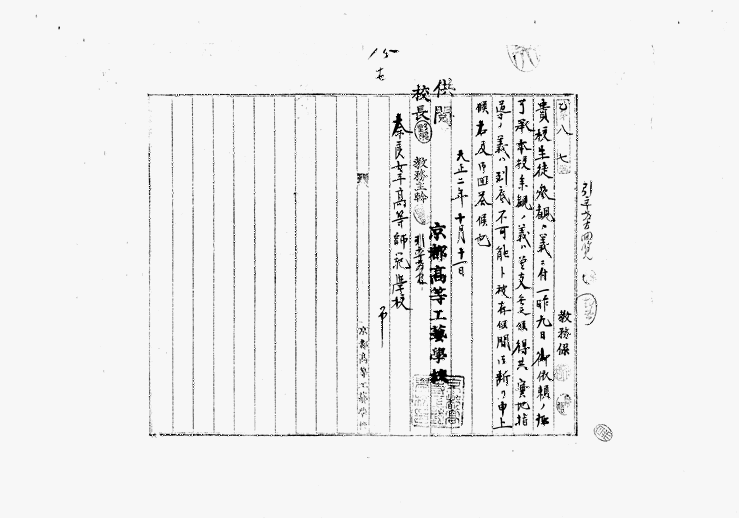 引率者回覧
乙八七
教務係
貴校生徒参観ノ義ニ付一昨九日御依頼ノ趣
了承本校参観ノ義ハ差支無之候得共実地指
導ノ義ハ到底不可能ト被存候間御断リ申上
候右及御回答候也
大正二年十月十一日
京都高等工藝學校
供閲
校長
教務主幹
奈良女子高等師範學校
御中
京都高等工藝學校